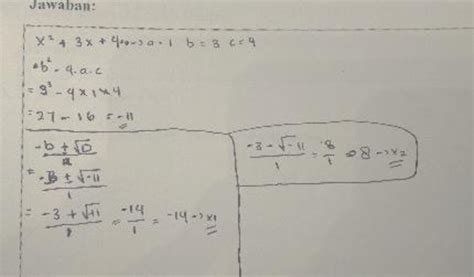 Jawaban:
x² + 3x + 4 = 0 → a = 1 b = 3 c = 4
= b² - 4.a.c
= 3³ - 4 x 1 x 4
= 27 - 16 = -11
-b ± √D
= -3 ± √-11
1
= -3 + √11 = -14 = -14 → x1
1 1
-3 - √-11 = 8 = 8 → x2
1 1